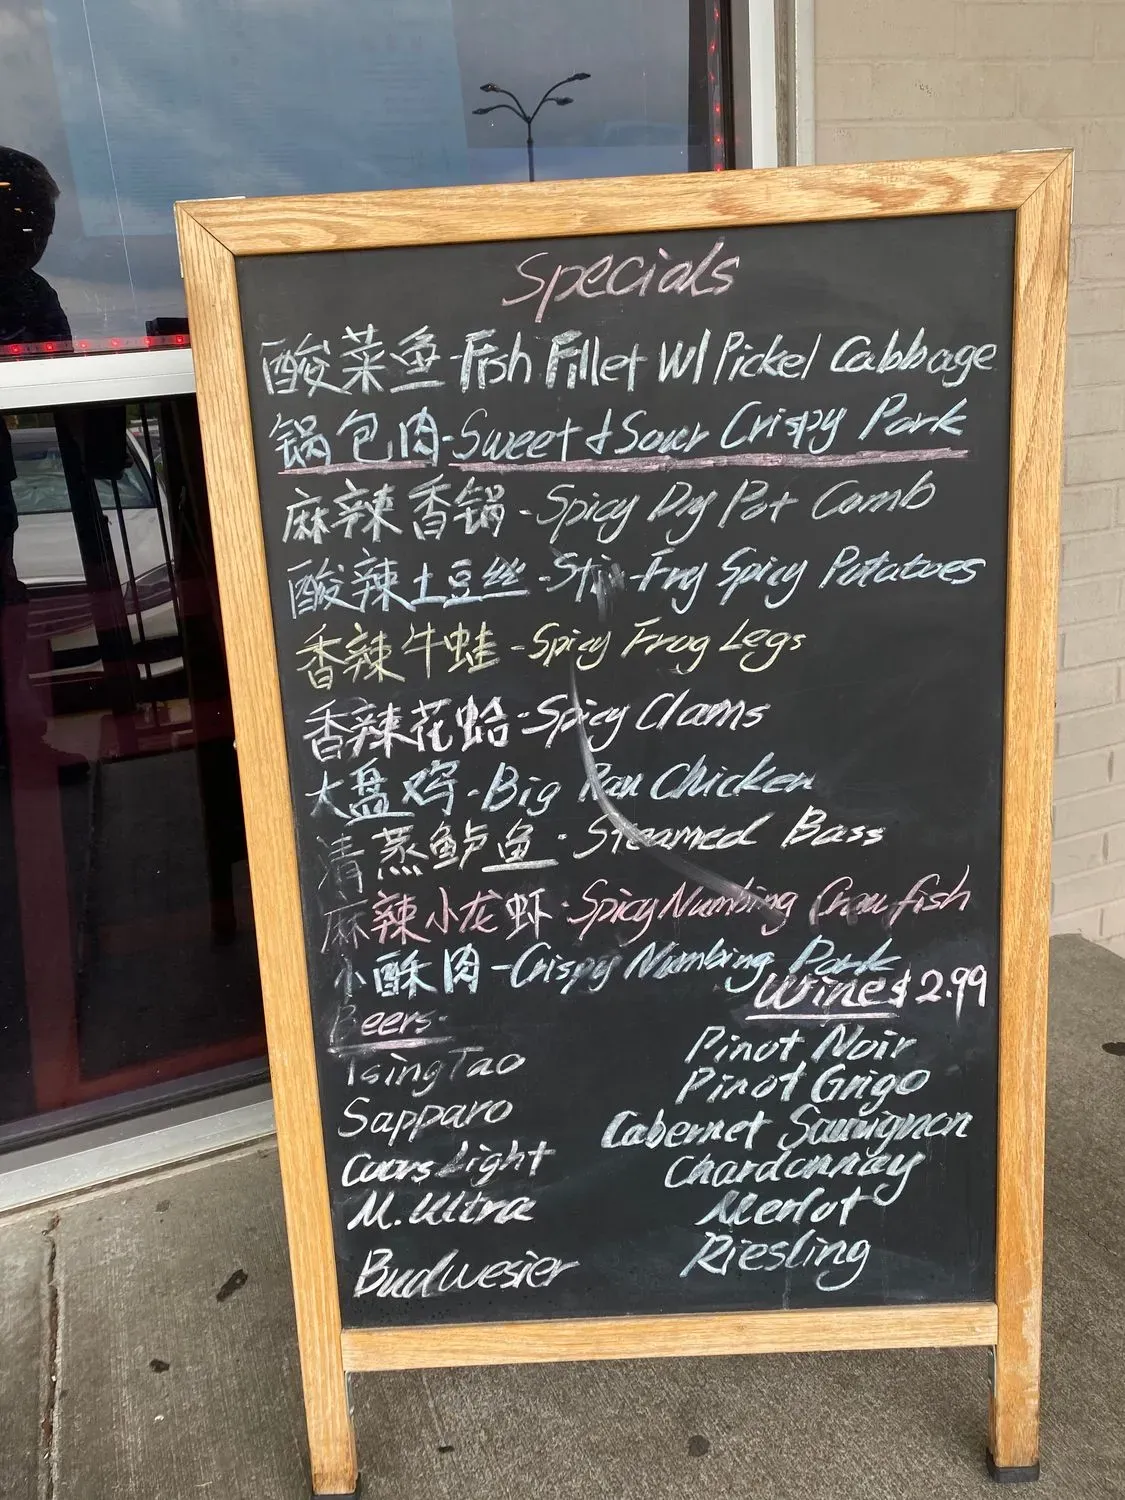 Specials
酸菜鱼-Fish Fillet W/ Pickel Cabbage
锅包肉-Sweet & Sour Crispy Pork
麻辣香锅-Spicy Dry Pot Comb
酸辣土豆丝-Stir-Fry Spicy Potatoes
香辣牛蛙-Spicy Frog Legs
香辣花蛤-Spicy Clams
大盘鸡-Big Pan Chicken
清蒸鲈鱼-Steamed Bass
麻辣小龙虾-Spicy Numbing Crawfish
小酥肉-Crispy Numbing Pork
Beers-
TsingTao
Sapparo
Coors Light
M. Ultra
Budwesier
Wine $2.99
Pinot Noir
Pinot Grigo
Cabernet Sauvignon
Chardonnay
Merlot
Riesling